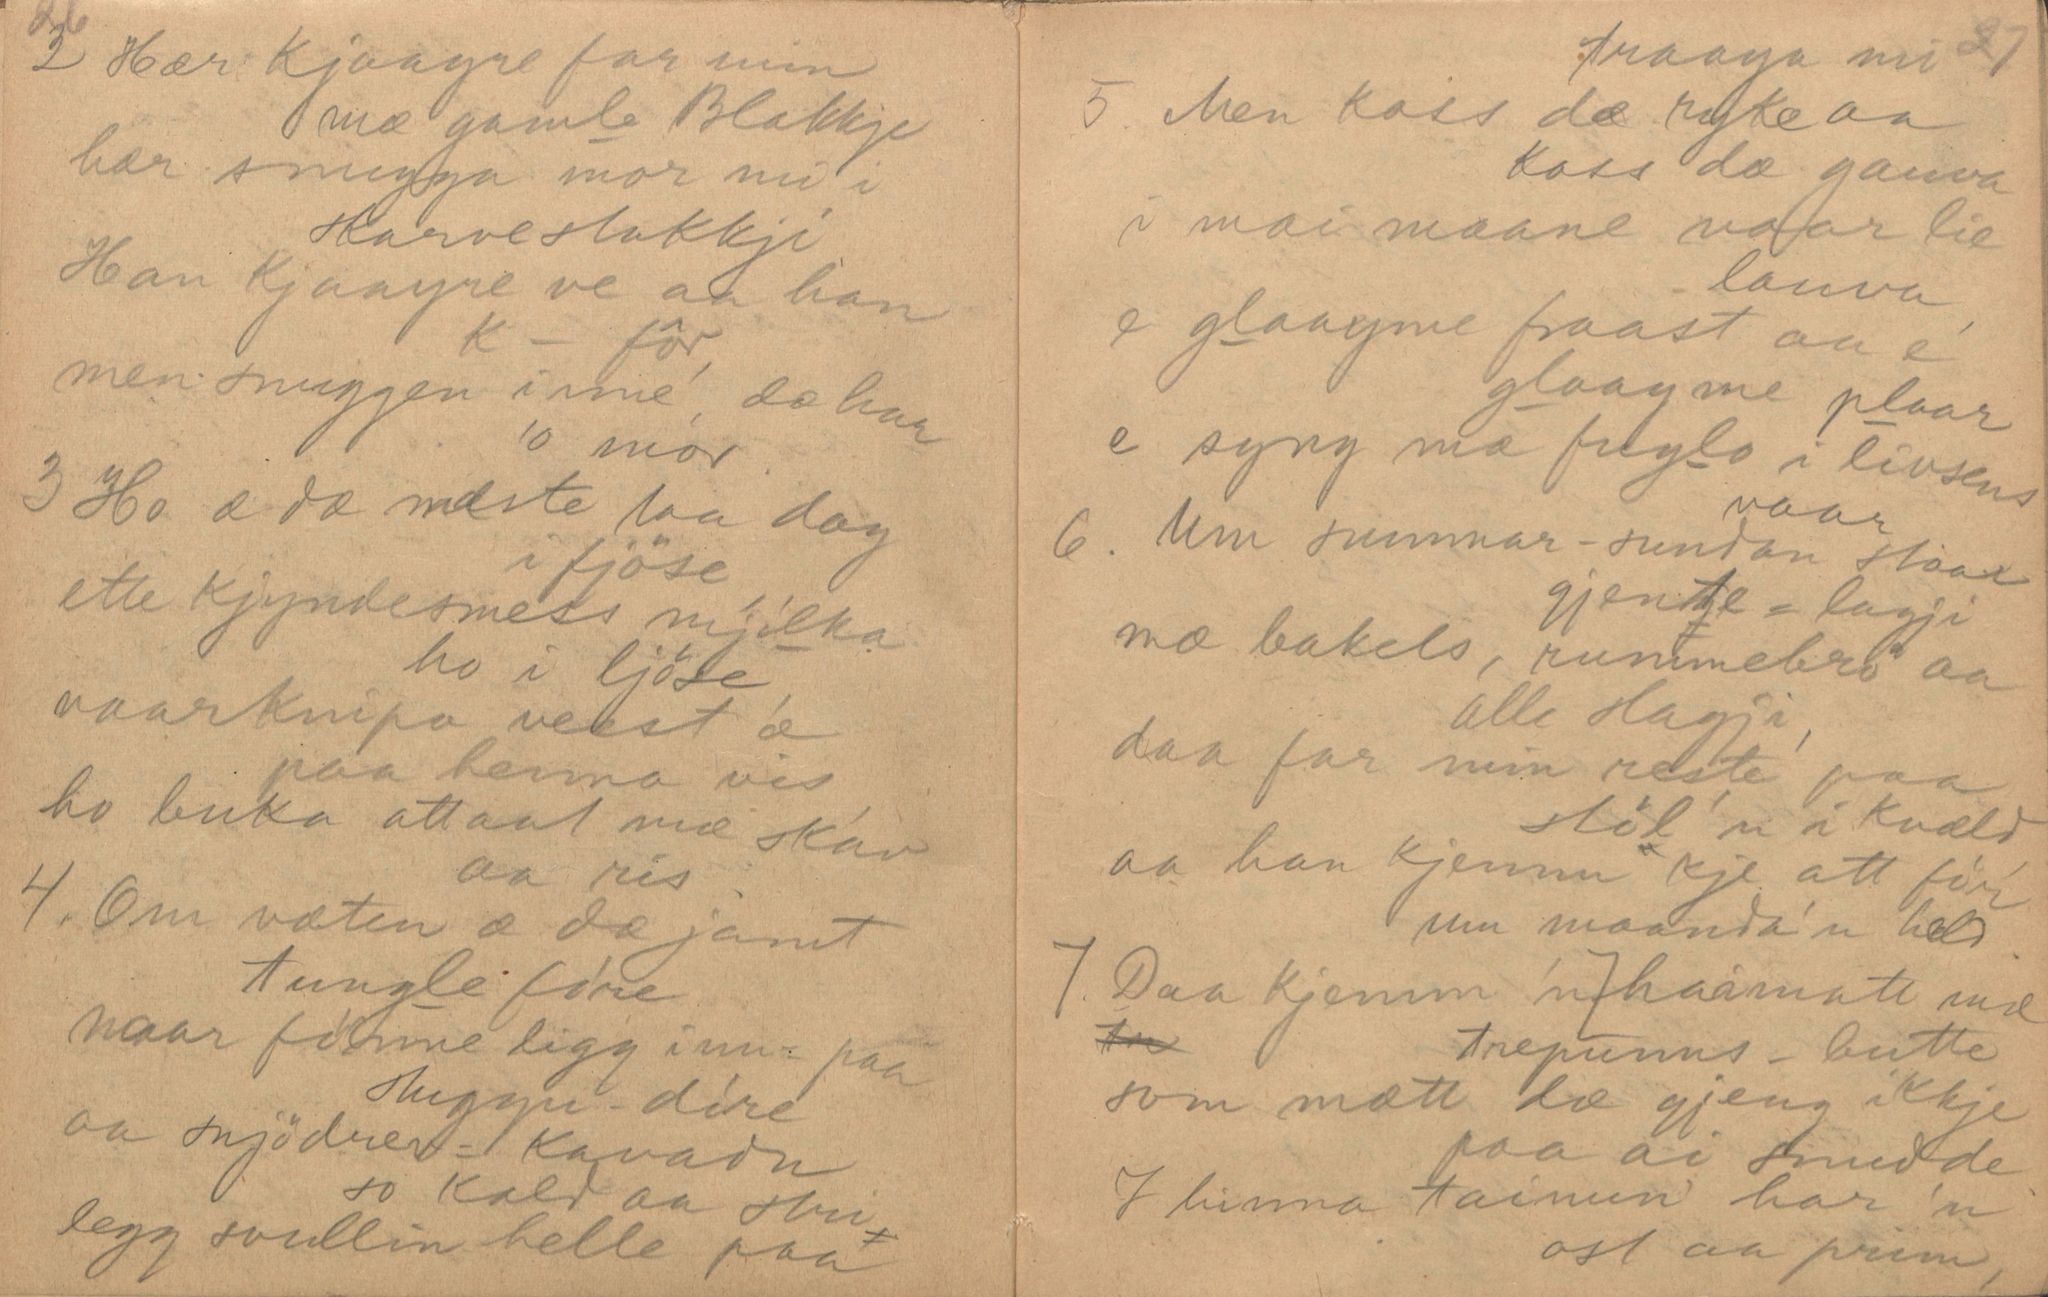 26
2 Hær kjaayre far min
mæ gamle Blakkje
hær snugga mor mi i
skarvestakkji
Han kjaayre ve aa han
k – for,
men snuggen inné, dæ har
'o mor.
3 Ho æ dæ mæste taa dag
i fjöse
ette kjyndesmess mjélka
ho i ljöse,
vaarknipa veest æ
paa henna vis
ho buka attaat mæ skav
aa ris.
4. Om væten æ dæ jamt
tungle före
naar fönne ligg inn- paa
stuggu-döre
aa snjödrev-kavadn
so kald aa stri
legg svullin helle paa
27
traaga mi
5. Men koss dæ ryke aa
koss dæ gauva
i mai maane vaar lie
lauva,
e glaayme fraast aa e
glaayme plaar
e syng mæ fuglo i livsens
vaar
6. Um summar-sundan staar
gjente-lagji
mæ bakels, rummebrö aa
alle slagji,
daa far min reste paa
stöl'n i kvæld
aa han kjemm kje att för
um maanda'n held.
7. Daa kjemm 'n haimatt mæ
trepunns-butte
som mætt dæ gjeng ikkje
paa ai snudde
I hinna tainun har 'n
ost aa prim,